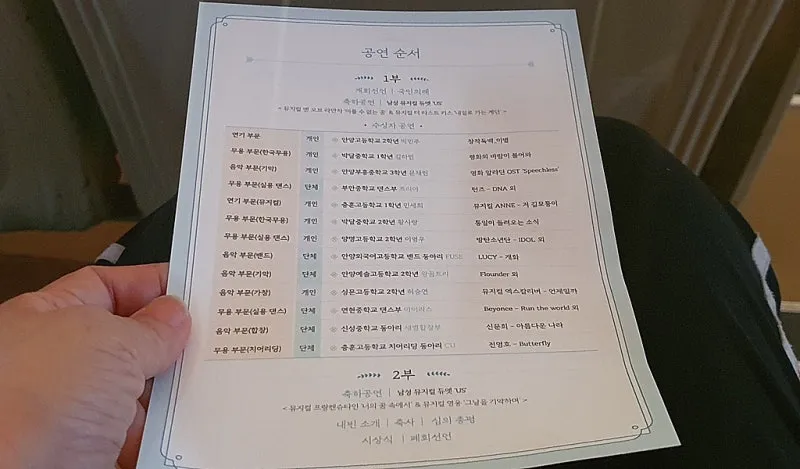 공연 순서
1부
개회선언 | 국민의례
축하공연 | 남성 뮤지컬 듀엣 'US'
수상자 공연
연기 부문 개인 안양고등학교 2학년 창작독백_이별
무용 부문(한국무용) 개인 박달중학교 1학년 김하엘 평화의 바람이 불어와
음악 부문(기악) 개인 안양부흥중학교 3학년 문채원 영화 알라딘 OST 'Speechless'
무용 부문(실용 댄스) 단체 부안중학교 댄스부 턴즈 – DNA 외
연기 부문(뮤지컬) 개인 충훈고등학교 1학년 민세희 뮤지컬 ANNE – 저 길모퉁이
무용 부문(한국무용) 개인 박달중학교 2학년 황사랑 통일이 들려오는 소식
무용 부문(실용 댄스) 개인 양명고등학교 2학년 이병우 방탄소년단 – IDOL 외
음악 부문(밴드) 단체 안양외국어고등학교 밴드 동아리 FUSE LUCY – 개화
음악 부문(기악) 단체 안양예술고등학교 2학년 Flounder 외
음악 부문(가창) 개인 성문고등학교 2학년 허승연 뮤지컬 엑스칼리버 – 언제일까
무용 부문(실용 댄스) 단체 연현중학교 댄스부 아이리스 Beyonce – Run the world 외
음악 부문(합창) 단체 신성중학교 동아리 새별합창부 신문희 – 아름다운 나라
무용 부문(치어리딩) 단체 충훈고등학교 치어리딩 동아리 전영호 – Butterfly
2부
축하공연 | 남성 뮤지컬 듀엣 'US'
< 뮤지컬 프랑켄슈타인 '너의 꿈 속에서' & 뮤지컬 영웅 '그날을 기약하며' >
내빈 소개 | 축사 | 심의 총평
시상식 | 폐회선언